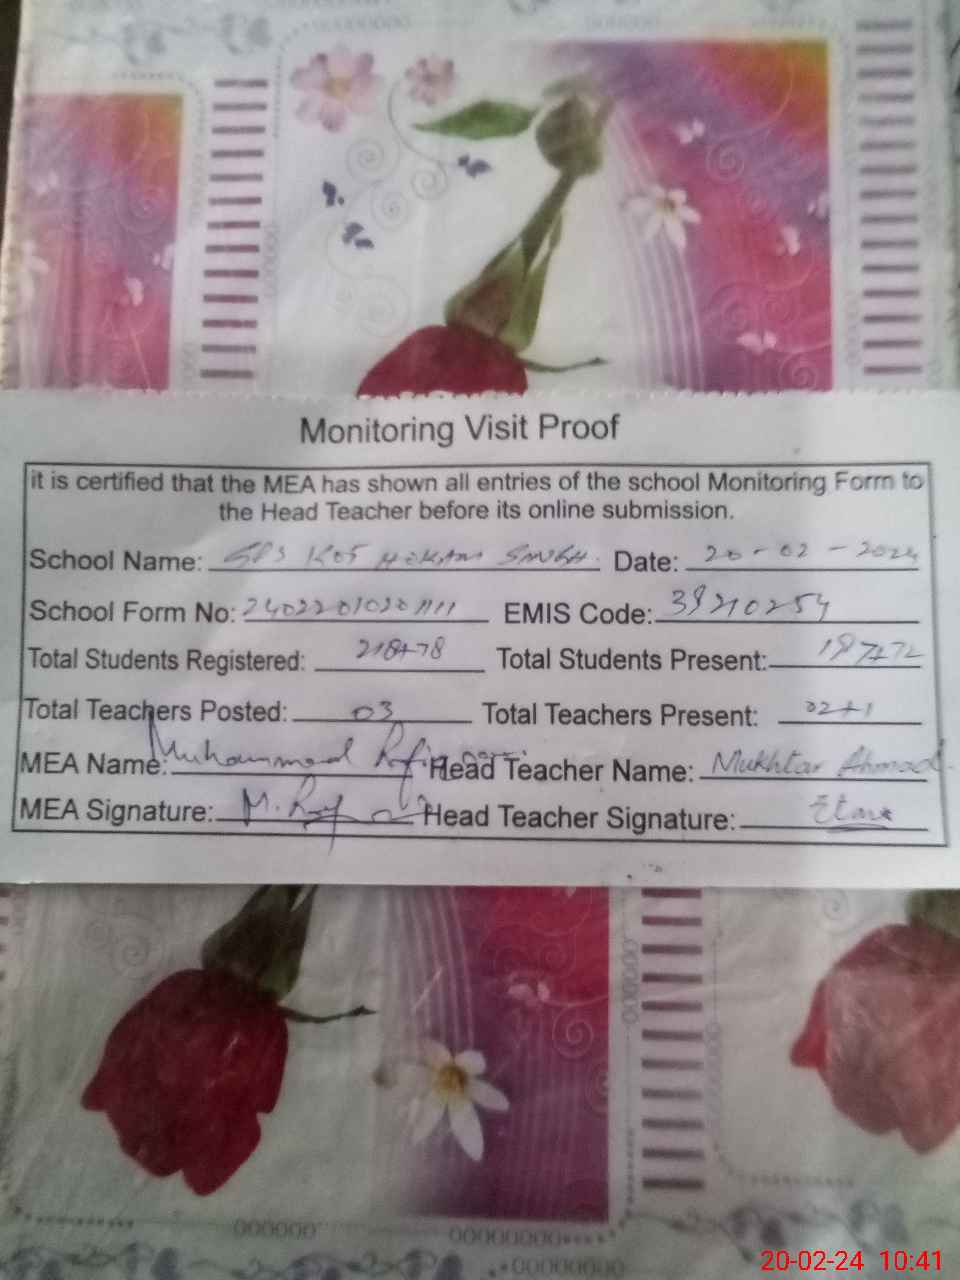 Monitoring Visit Proof
it is certified that the MEA has shown all entries of the school Monitoring Form to
the Head Teacher before its online submission.
School Name: GPS KOT HOKAM SINGH. Date: 20-02-2024
School Form No: EMIS Code: 39210254
Total Students Registered: 218+78 Total Students Present: 187+72
Total Teachers Posted: 03 Total Teachers Present: 02+1
MEA Name: Muhammad Head Teacher Name: Mukhtar Ahmad
MEA Signature: Head Teacher Signature:
20-02-24 10:41